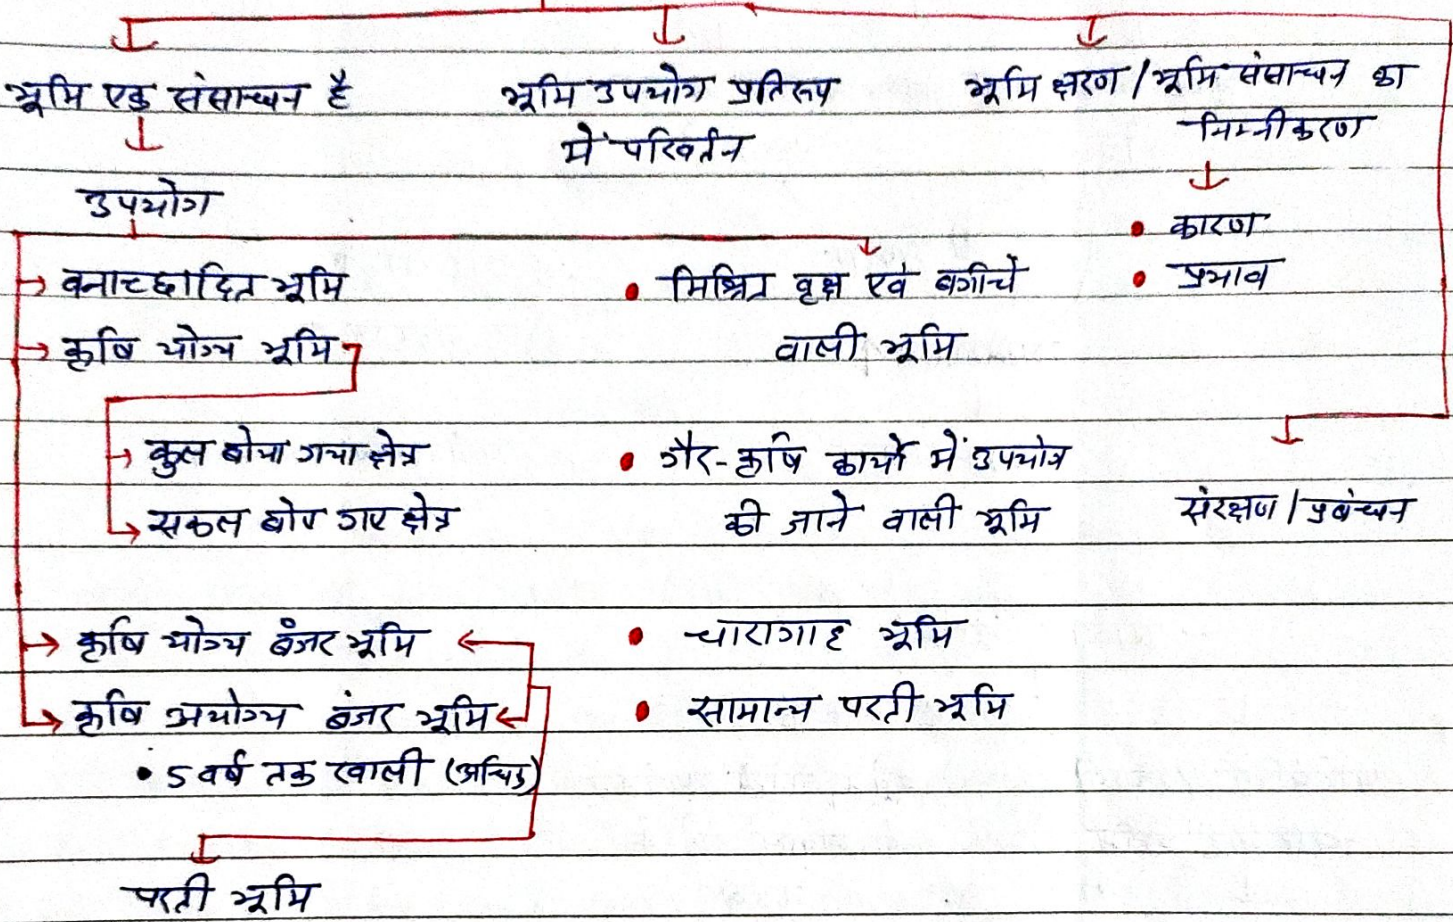 भूमि एक संसाधन है
उपयोग
वनाच्छादित भूमि
कृषि योग्य भूमि
कुल बोया गया क्षेत्र
सकल बोए गए क्षेत्र
कृषि योग्य बंजर भूमि
कृषि अयोग्य बंजर भूमि
• 5 वर्ष तक खाली (अधिक)
परती भूमि
• मिश्रित वृक्ष एवं बगीचे
वाली भूमि
• गैर-कृषि कार्यों में उपयोग
की जाने वाली भूमि
• चारागाह भूमि
• सामान्य परती भूमि
भूमि उपयोग प्रतिरूप
में परिवर्तन
भूमि क्षरण / भूमि संसाधन का
निम्नीकरण
• कारण
• प्रभाव
संरक्षण / प्रबंधन